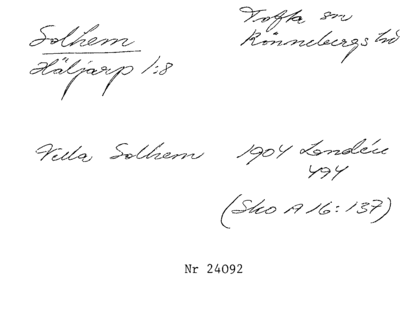 Solhem
Häljarp 1:8
Tofta sn
Rönnebergs hd
Villa Solhem
1904 Londén
494
(Sko A 16:137)
Nr 24092